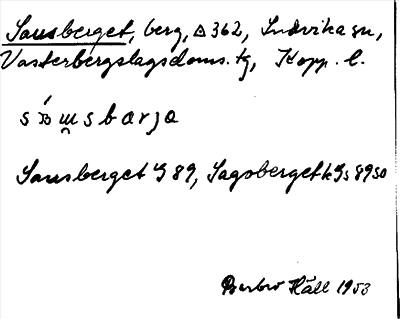 Sausberget, berg, △362, Ludvika sn,
Västerbergslagsdoms. tg, Kopp. l.
Sausberget G 89, Sagoberget k Gs 89 SO
Barbro Häll 1953